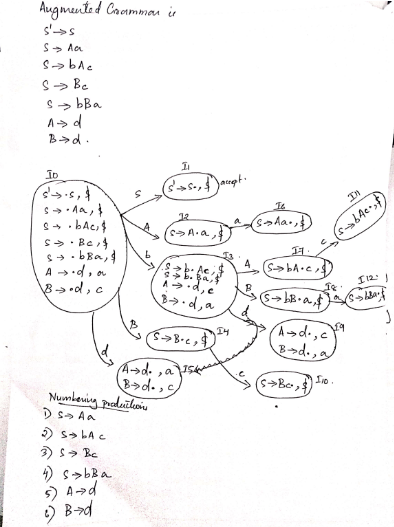 Augmented Grammar is
S' → S
S → Aa
S → bAc
S → Bc
S → bBa
A → d
B → d.
I0
S' → .S, $
S → .Aa, $
S → .bAc, $
S → .Bc, $
S → .bBa, $
A → .d, a
B → .d, c
S
I1
S' → S., $
accept.
A
I2
S → A.a, $
a
I6
S → Aa., $
b
I3
S → b.Ac, $
S → b.Ba, $
A → .d, c
B → .d, a
A
I7
S → bA.c, $
c
I11
S → bAc., $
B
I8.
S → bB.a, $
a
I12
S → bBa., $
d
I9
A → d., c
B → d., a
B
S → B.c, $
I4
c
S → Bc., $
I10.
d
A → d., a
B → d., c
I5
Numbering productions
1) S → Aa
2) S → bAc
3) S → Bc
4) S → bBa
5) A → d
6) B → d